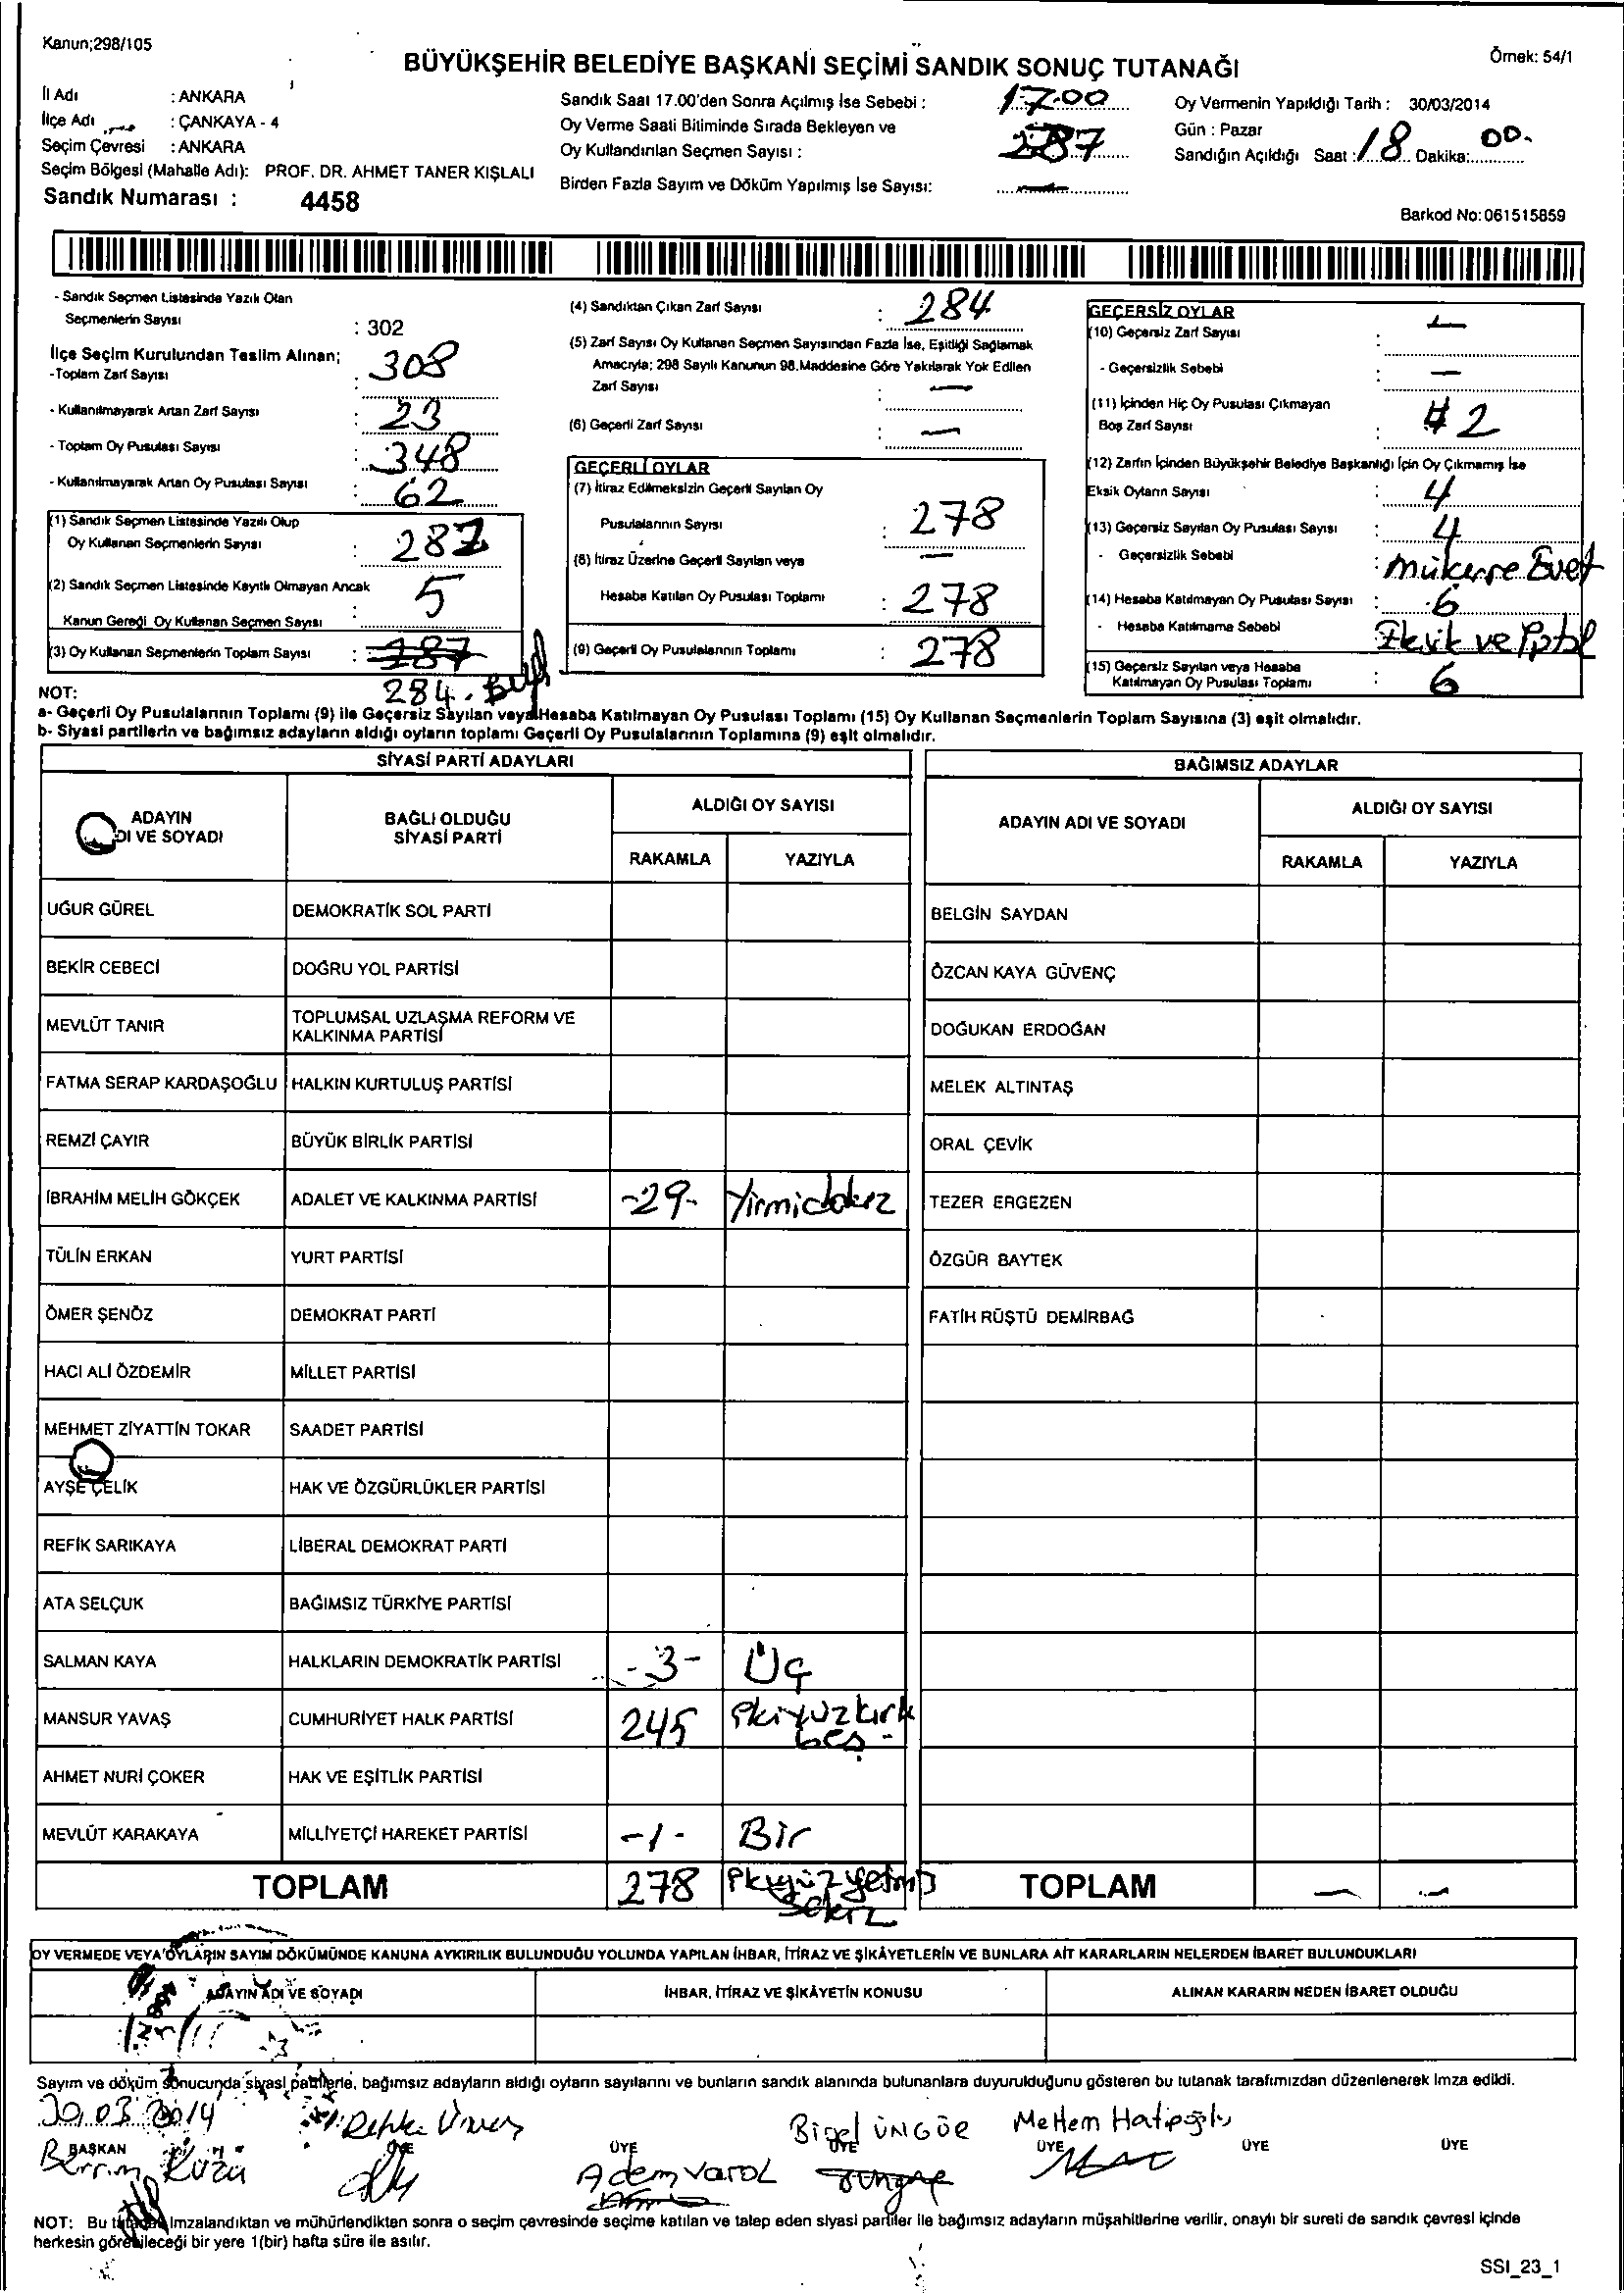 Kanun;298/105
BÜYÜKŞEHİR BELEDİYE BAŞKANİ SEÇİMİ SANDIK SONUÇ TUTANAĞI
Örnek: 54/1
İl Adı : ANKARA
İlçe Adı : ÇANKAYA - 4
Seçim Çevresi : ANKARA
Seçim Bölgesi (Mahalle Adı): PROF. DR. AHMET TANER KIŞLALI
Sandık Numarası : 4458
Sandık Saat 17.00'den Sonra Açılmış İse Sebebi : 17.00
Oy Verme Saati Bitiminde Sırada Bekleyen ve
Oy Kullandırılan Seçmen Sayısı : 287
Birden Fazla Sayım ve Döküm Yapılmış İse Sayısı:
Oy Vermenin Yapıldığı Tarih : 30/03/2014
Gün : Pazar
Sandığın Açıldığı Saat : 18 Dakika: 00.
Barkod No: 061515859
- Sandık Seçmen Listesinde Yazılı Olan
Seçmenlerin Sayısı : 302
İlçe Seçim Kurulundan Teslim Alınan;
-Toplam Zarf Sayısı : 308
- Kullanılmayarak Artan Zarf Sayısı : 23
- Toplam Oy Pusulası Sayısı : 348
- Kullanılmayarak Artan Oy Pusulası Sayısı : 62
(1) Sandık Seçmen Listesinde Yazılı Olup
Oy Kullanan Seçmenlerin Sayısı : 287
(2) Sandık Seçmen Listesinde Kayıtlı Olmayan Ancak
Kanun Gereği Oy Kullanan Seçmen Sayısı : 5
(3) Oy Kullanan Seçmenlerin Toplam Sayısı : 287
284.
(4) Sandıktan Çıkan Zarf Sayısı : 284
(5) Zarf Sayısı Oy Kullanan Seçmen Sayısından Fazla İse, Eşitliği Sağlamak
Amacıyla; 298 Sayılı Kanunun 98.Maddesine Göre Yakılarak Yok Edilen
Zarf Sayısı : —
(6) Geçerli Zarf Sayısı : —
GEÇERLİ OYLAR
(7) İtiraz Edilmeksizin Geçerli Sayılan Oy
Pusulalarının Sayısı : 278
(8) İtiraz Üzerine Geçerli Sayılan veya —
Hesaba Katılan Oy Pusulası Toplamı : 278
(9) Geçerli Oy Pusulalarının Toplamı : 278
GEÇERSİZ OYLAR
(10) Geçersiz Zarf Sayısı : —
- Geçersizlik Sebebi : —
(11) İçinden Hiç Oy Pusulası Çıkmayan
Boş Zarf Sayısı : 2
(12) Zarfın İçinden Büyükşehir Belediye Başkanlığı İçin Oy Çıkmamış İse
Eksik Oyların Sayısı : 4
(13) Geçersiz Sayılan Oy Pusulası Sayısı : 4
- Geçersizlik Sebebi : Evet
(14) Hesaba Katılmayan Oy Pusulası Sayısı : 6
- Hesaba Katılmama Sebebi Eksik ve İptal
(15) Geçersiz Sayılan veya Hesaba
Katılmayan Oy Pusulası Toplamı : 6
NOT:
a- Geçerli Oy Pusulalarının Toplamı (9) ile Geçersiz Sayılan veya Hesaba Katılmayan Oy Pusulası Toplamı (15) Oy Kullanan Seçmenlerin Toplam Sayısına (3) eşit olmalıdır.
b- Siyasi partilerin ve bağımsız adayların aldığı oyların toplamı Geçerli Oy Pusulalarının Toplamına (9) eşit olmalıdır.
SİYASİ PARTİ ADAYLARI
ADAYIN
DI VE SOYADI
BAĞLI OLDUĞU
SİYASİ PARTİ
ALDIĞI OY SAYISI
RAKAMLA YAZIYLA
UĞUR GÜREL DEMOKRATİK SOL PARTİ
BEKİR CEBECİ DOĞRU YOL PARTİSİ
MEVLÜT TANIR TOPLUMSAL UZLAŞMA REFORM VE
KALKINMA PARTİSİ
FATMA SERAP KARDAŞOĞLU HALKIN KURTULUŞ PARTİSİ
REMZİ ÇAYIR BÜYÜK BİRLİK PARTİSİ
İBRAHİM MELİH GÖKÇEK ADALET VE KALKINMA PARTİSİ -29- Yirmidokuz
TÜLİN ERKAN YURT PARTİSİ
ÖMER ŞENÖZ DEMOKRAT PARTİ
HACI ALİ ÖZDEMİR MİLLET PARTİSİ
MEHMET ZİYATTİN TOKAR SAADET PARTİSİ
AYŞE ÇELİK HAK VE ÖZGÜRLÜKLER PARTİSİ
REFİK SARIKAYA LİBERAL DEMOKRAT PARTİ
ATA SELÇUK BAĞIMSIZ TÜRKİYE PARTİSİ
SALMAN KAYA HALKLARIN DEMOKRATİK PARTİSİ -3- Üç
MANSUR YAVAŞ CUMHURİYET HALK PARTİSİ 245 İkiyüzkırk
beş -
AHMET NURİ ÇOKER HAK VE EŞİTLİK PARTİSİ
MEVLÜT KARAKAYA MİLLİYETÇİ HAREKET PARTİSİ -1- Bir
TOPLAM 278 İkiyüzyetmiş
Sekiz
BAĞIMSIZ ADAYLAR
ADAYIN ADI VE SOYADI
ALDIĞI OY SAYISI
RAKAMLA YAZIYLA
BELGİN SAYDAN
ÖZCAN KAYA GÜVENÇ
DOĞUKAN ERDOĞAN
MELEK ALTINTAŞ
ORAL ÇEVİK
TEZER ERGEZEN
ÖZGÜR BAYTEK
FATİH RÜŞTÜ DEMİRBAĞ
TOPLAM — —
OY VERMEDE VEYA OYLARIN SAYIM DÖKÜMÜNDE KANUNA AYKIRILIK BULUNDUĞU YOLUNDA YAPILAN İHBAR, İTİRAZ VE ŞİKÂYETLERİN VE BUNLARA AİT KARARLARIN NELERDEN İBARET BULUNDUKLARI
ADAYIN ADI VE SOYADI
İHBAR, İTİRAZ VE ŞİKÂYETİN KONUSU
ALINAN KARARIN NEDEN İBARET OLDUĞU
Sayım ve döküm sonucunda siyasi partilerle, bağımsız adayların aldığı oyların sayılarını ve bunların sandık alanında bulunanlara duyurulduğunu gösteren bu tutanak tarafımızdan düzenlenerek imza edildi.
30.03.2014
Birgel ÜNGÖR Meltem Hatipoğlu
BAŞKAN ÜYE ÜYE ÜYE ÜYE ÜYE ÜYE
Adem Varol
NOT: Bu tutanak İmzalandıktan ve mühürlendikten sonra o seçim çevresinde seçime katılan ve talep eden siyasi partiler ile bağımsız adayların müşahitlerine verilir, onaylı bir sureti de sandık çevresi içinde
herkesin görebileceği bir yere 1(bir) hafta süre ile asılır.
SSI_23_1